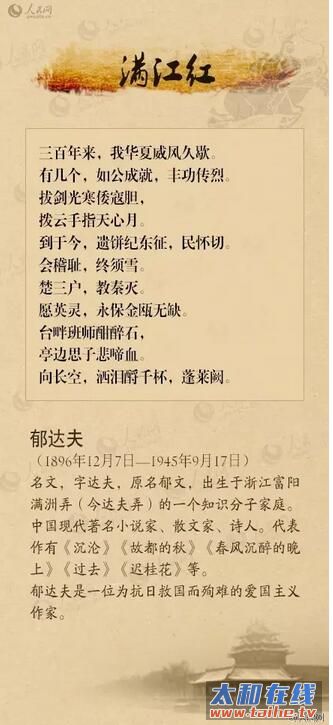 人民网
people.cn
满江红
三百年来，我华夏威风久歇。
有几个，如公成就，丰功传烈。
拔剑光寒倭寇胆，
拨云手指天心月。
到于今，遗饼纪东征，民怀切。
会稽耻，终须雪。
楚三户，教秦灭。
愿英灵，永保金瓯无缺。
台畔班师酣醉石，
亭边思子悲啼血。
向长空，洒泪酹千杯，蓬莱阙。
郁达夫
（1896年12月7日—1945年9月17日）
名文，字达夫，原名郁文，出生于浙江富阳
满洲弄（今达夫弄）的一个知识分子家庭。
中国现代著名小说家、散文家、诗人。代表
作有《沉沦》《故都的秋》《春风沉醉的晚
上》《过去》《迟桂花》等。
郁达夫是一位为抗日救国而殉难的爱国主义
作家。
太和在线
www.taihe.tv